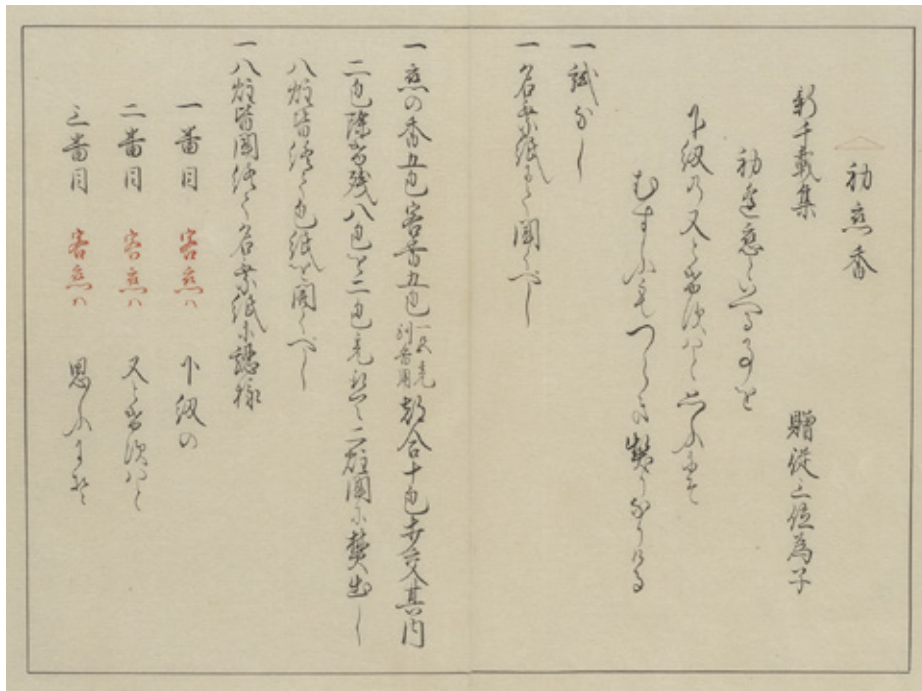 〽 初恋香
新千載集　贈従三位為子
初逢恋といへる事を
下紐の又とけすはと思ふにそ
むすふもつらき契りなりける
一 試なし
一 名乗紙にて聞くへし
一 恋の香五包客香五包 一包充別香用 都合十包打交其内
二包除き残八包を二包充組て二炷聞に焚出し
八炷皆終て包紙を開くへし
一 八炷皆聞終て名乗紙に認様
一番目　客恋ハ　下紐の
二番目　客恋ハ　又とけすはと
三番目　客恋ハ　思ふにそ